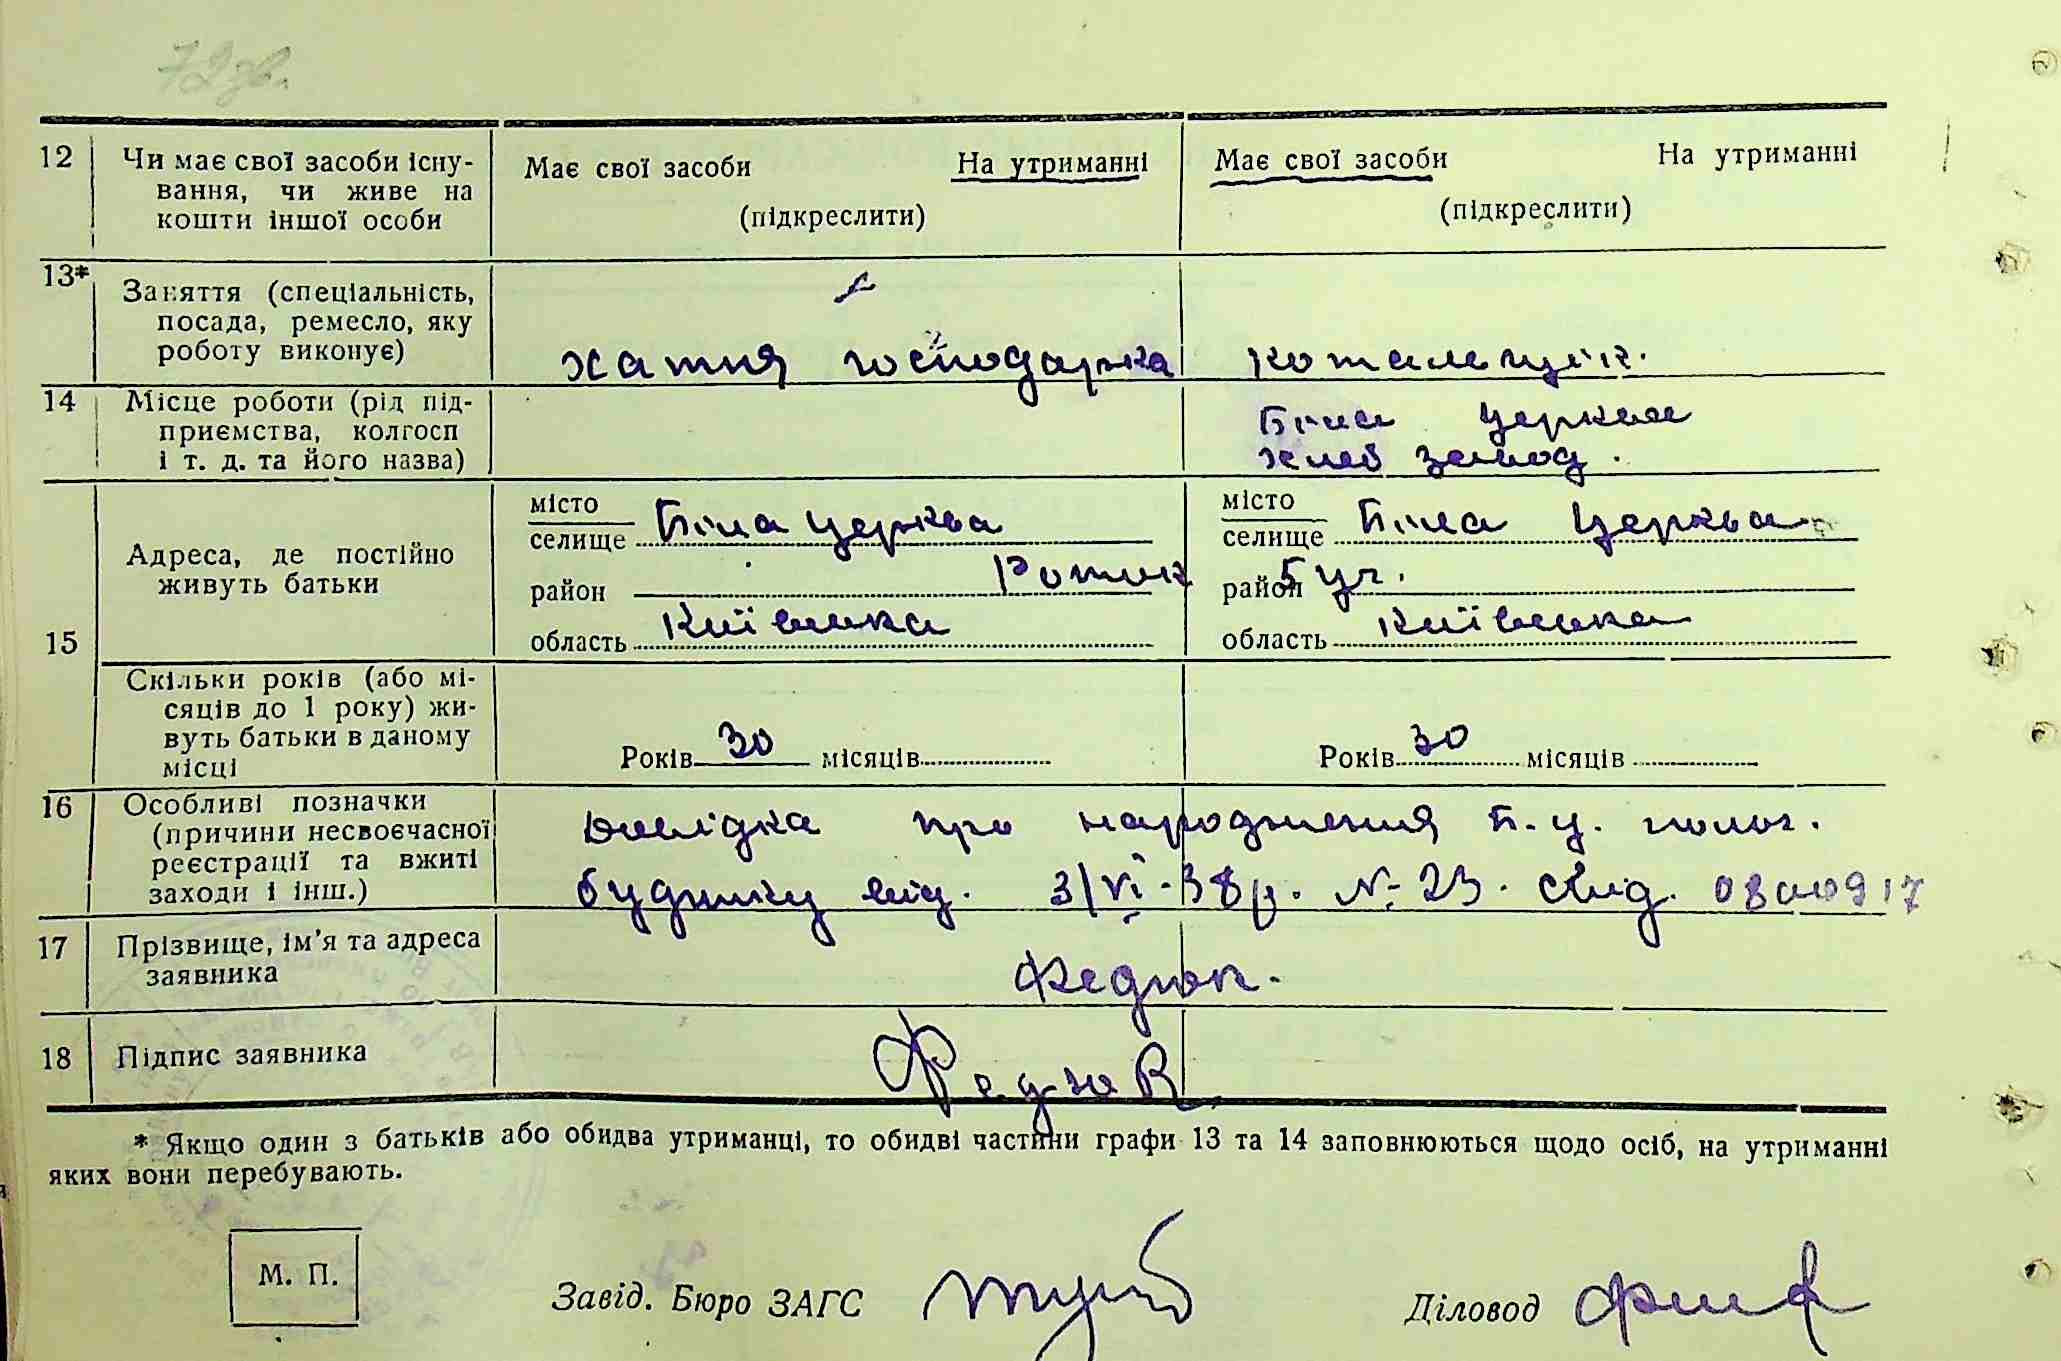 72 зв.
12 Чи має свої засоби існу- Має свої засоби На утриманні Має свої засоби На утриманні
вання, чи живе на
кошти іншої особи (підкреслити) (підкреслити)
13* Заняття (спеціальність,
посада, ремесло, яку
роботу виконує) хатня господарка котельщік.
14 Місце роботи (рід під- Біла Церква
приємства, колгосп
і т. д. та його назва) хлеб завод.
15 Адреса, де постійно живуть батьки
місто Біла Церква місто Біла Церква
селище селище
район Роток район 5 уч.
область Київська область Київська
Скільки років (або мі-
сяців до 1 року) жи-
вуть батьки в даному
місці Років 30 місяців Років 30 місяців
16 Особливі позначки Довідка про народження Б. Ц. полог.
(причини несвоєчасної
реєстрації та вжиті
заходи і інш.) будинку від. 3/VI-38р. № 23. свід.
17 Прізвище, ім'я та адреса
заявника Федюк.
18 Підпис заявника Федюк
* Якщо один з батьків або обидва утриманці, то обидві частини графи 13 та 14 заповнюються щодо осіб, на утриманні
яких вони перебувають.
М. П. Завід. Бюро ЗАГС Діловод